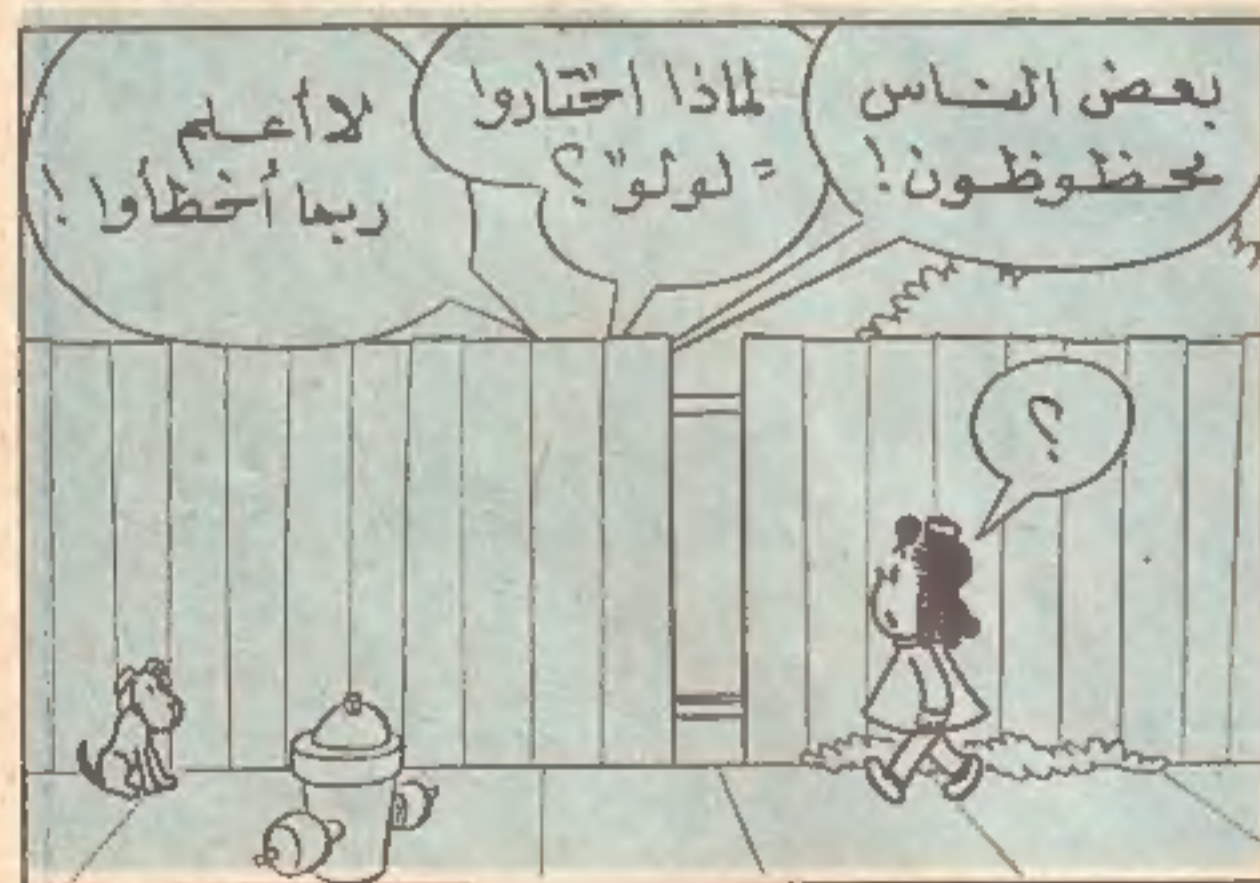 بعض الناس
محظوظون!
لماذا اختاروا
"لولو"؟
لا أعلم
ربما أخطأوا!
؟